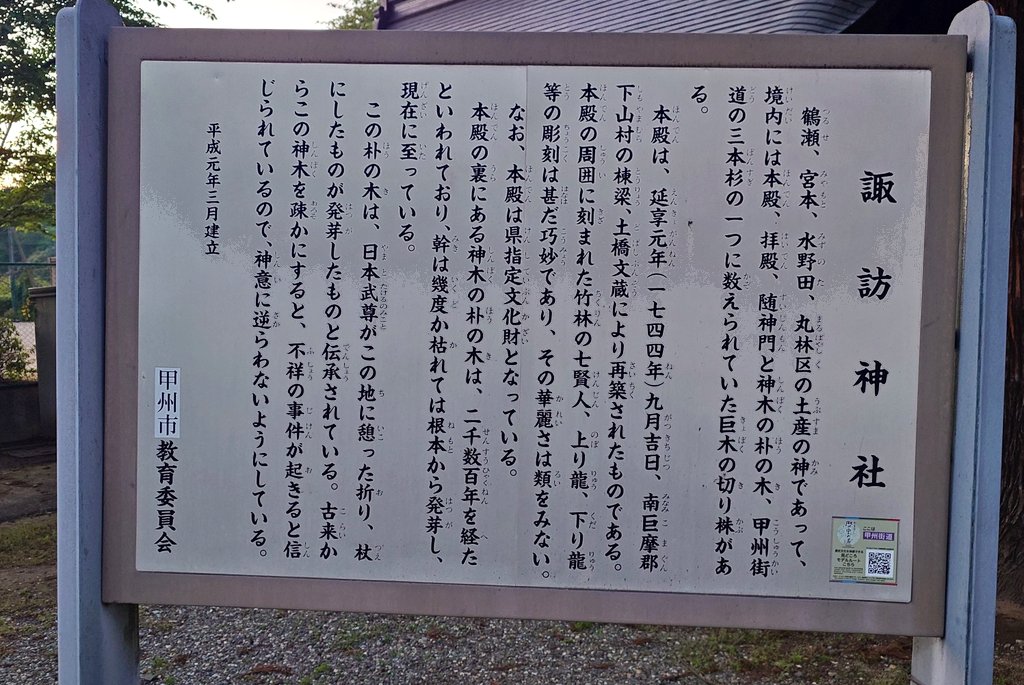 諏訪神社
鶴瀬、宮本、水野田、丸林区の土産の神であって、
境内には本殿、拝殿、随神門と神木の朴の木、甲州街
道の三本杉の一つに数えられていた巨木の切り株があ
る。
本殿は、延享元年(一七四四年)九月吉日、南巨摩郡
下山村の棟梁、土橋文蔵により再築されたものである。
本殿の周囲に刻まれた竹林の七賢人、上り龍、下り龍
等の彫刻は甚だ巧妙であり、その華麗さは類をみない。
なお、本殿は県指定文化財となっている。
本殿の裏にある神木の朴の木は、二千数百年を経た
といわれており、幹は幾度か枯れては根本から発芽し、
現在に至っている。
この朴の木は、日本武尊がこの地に憩った折り、杖
にしたものが発芽したものと伝承されている。古来か
らこの神木を疎かにすると、不祥の事件が起きると信
じられているので、神意に逆らわないようにしている。
平成元年三月建立
甲州市教育委員会
ここは
甲州街道